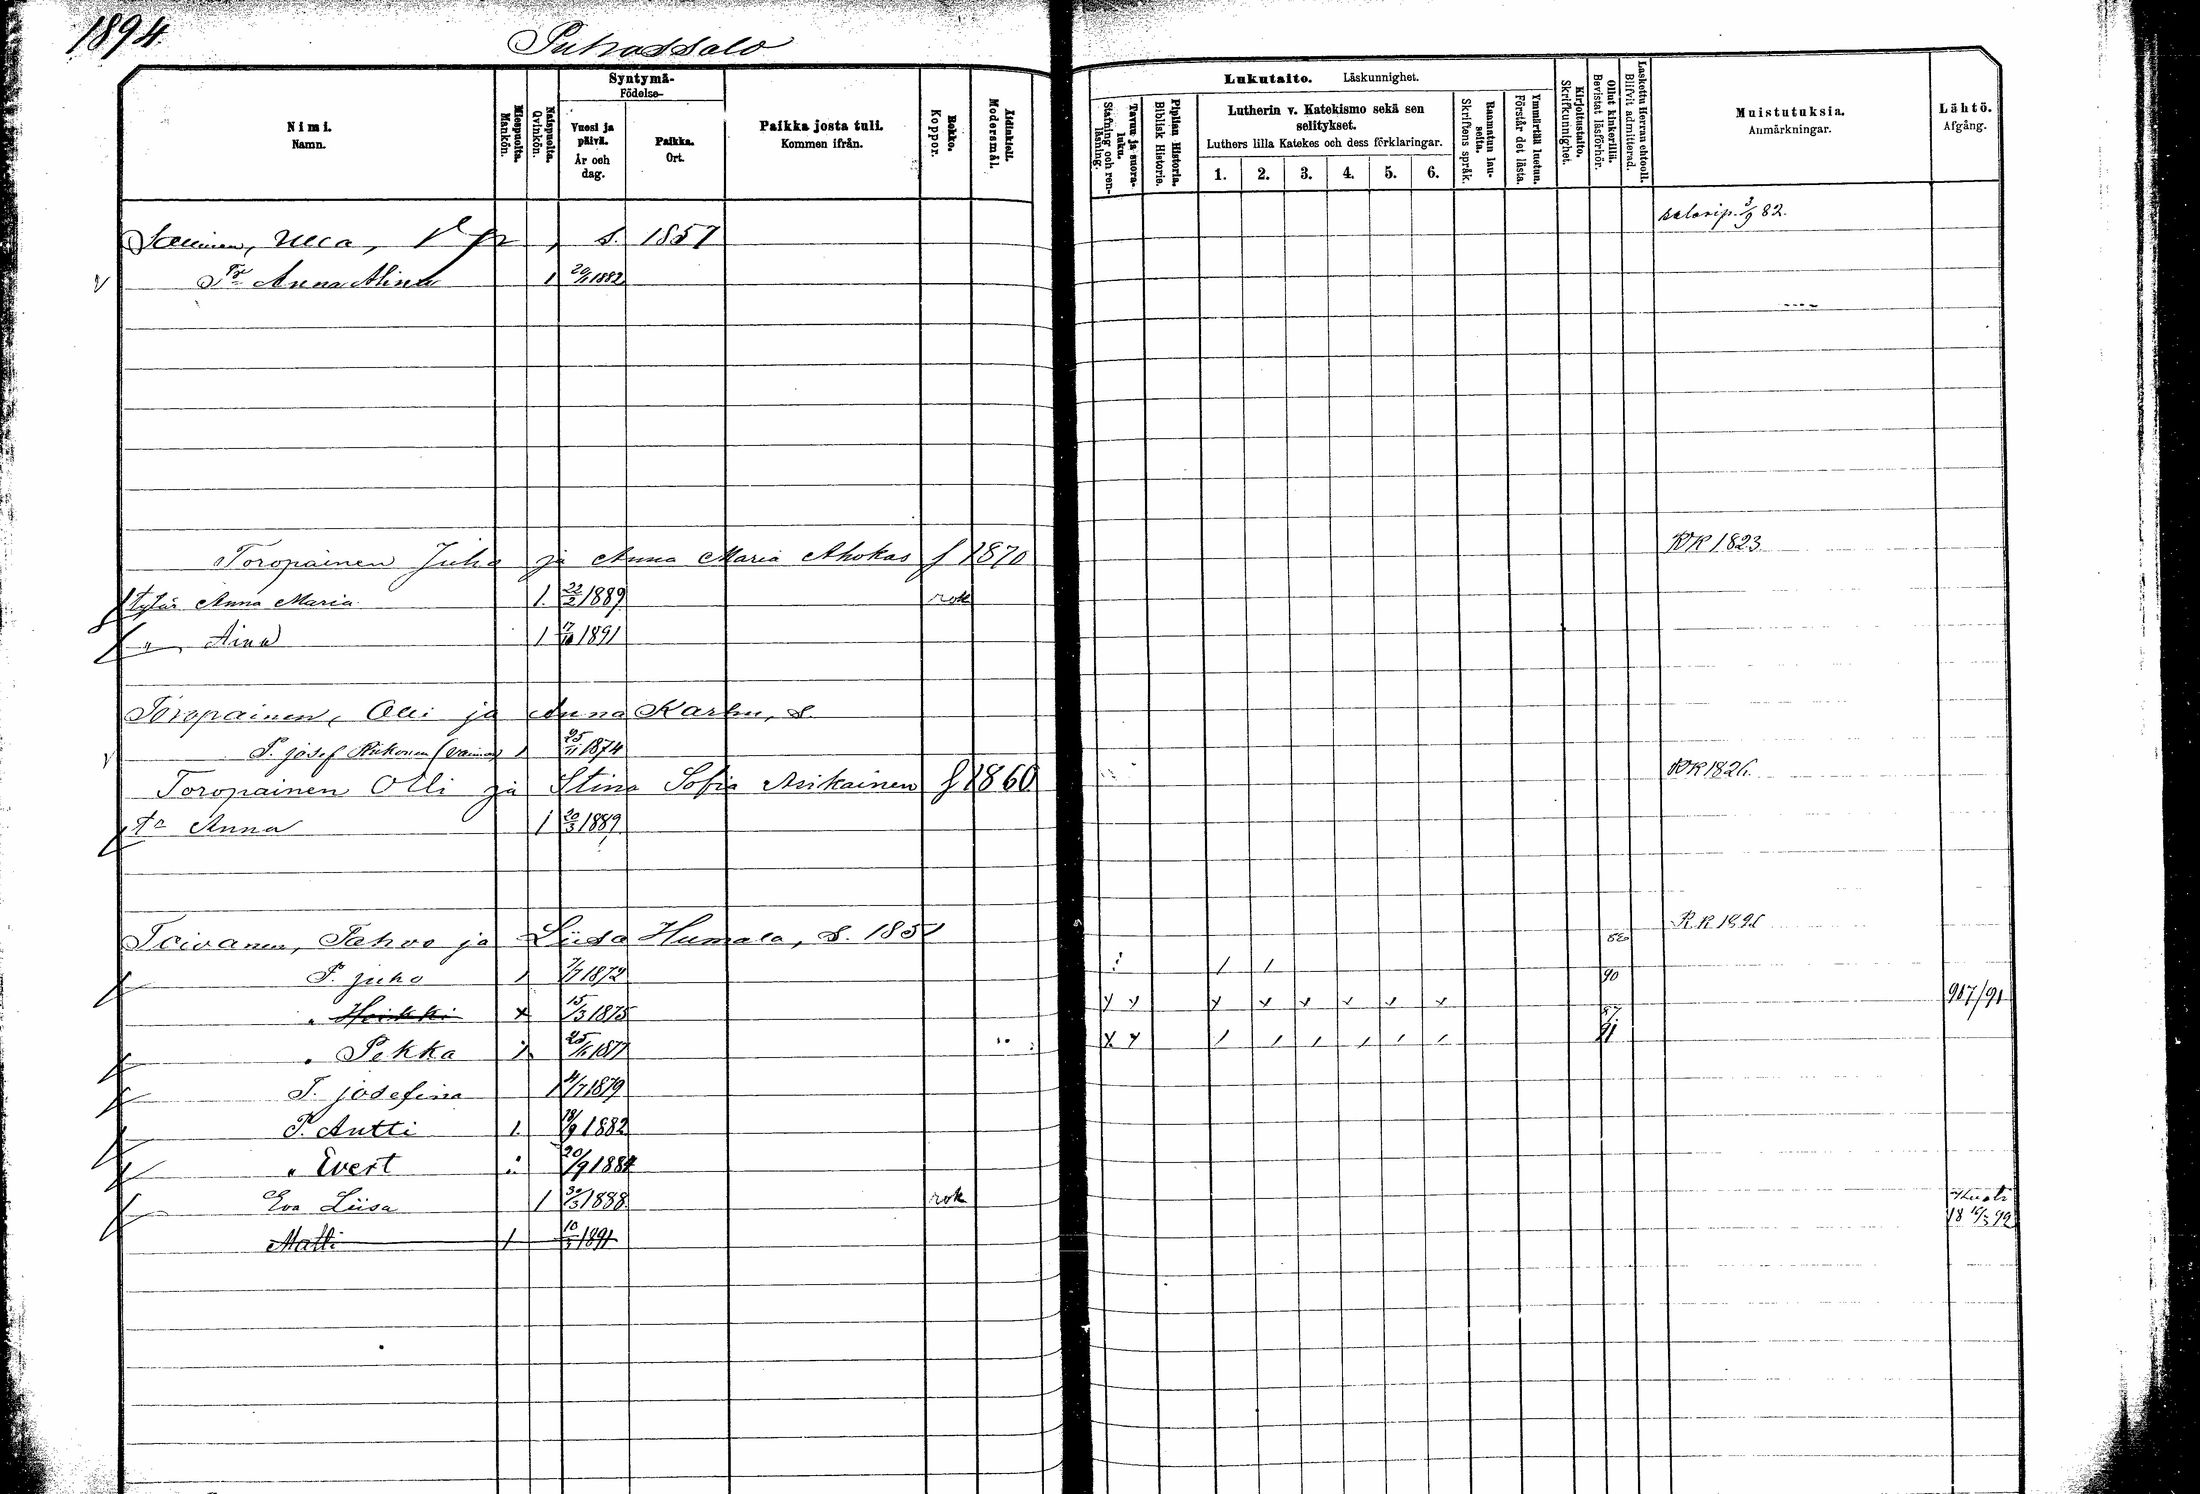 1894.
Putrassalo
Nimi.
Namn.
Miespuolta.
Mankön.
Naispuolta.
Qvinkön.
Syntymä-
Födelse-
Vuosi ja päivä.
År och dag.
Paikka.
Ort.
Paikka josta tuli.
Kommen ifrån.
Rokko.
Koppor.
Äidinkieli.
Modersmål.
Lukutaito. Läskunnighet.
Tavuu- ja suora-luku.
Stafning och ren-läsning.
Piplian Historia.
Biblisk Historie.
Lutherin v. Katekismo sekä sen
selitykset.
Luthers lilla Katekes och dess förklaringar.
1. 2. 3. 4. 5. 6.
Raamatun lau-seita.
Skriftens språk.
Ymmärtää luetun.
Förstår det lästa.
Kirjoitustaito.
Skrifkunnighet.
Ollut kinkerillä.
Bevistat läsförhör.
Laskettu Herran ehtooll.
Blifvit admitterad.
Muistutuksia.
Anmärkningar.
Lähtö.
Afgång.
s. 1857 3/9 82.
Tr Anna Alina 1 1882
Toropainen Juho ja Anna Maria Ahokas f 1870 RK 1823
tytär Anna Maria 1. 22/2 1889 rok
" Aina 1 17/10 1891
Toropainen, Olli ja Anna Karhu, s.
P. Josef (vaimo) 1 25/11 1874
Toropainen Olli ja Stina Sofia Asikainen f 1860 RK 1826.
tr Anna 1 20/3 1889
Toivanen, Pahvo ja Liisa Humala, s. 1851 RK
P. Juho 1 7/7 1872 1 1 90
" Heikki x 15/3 1875 x x x x x x x x 917/91
" Pekka 1. 1877 x x 1 1 1 1 1 1 91
T. Josefina 1 4/7 1879
P. Antti 1. 18/9 1882
" Evert 20/9 1884
Eva Liisa 1 30/3 1888. rok
Matti 1 10/3 1891 18 10/3 92